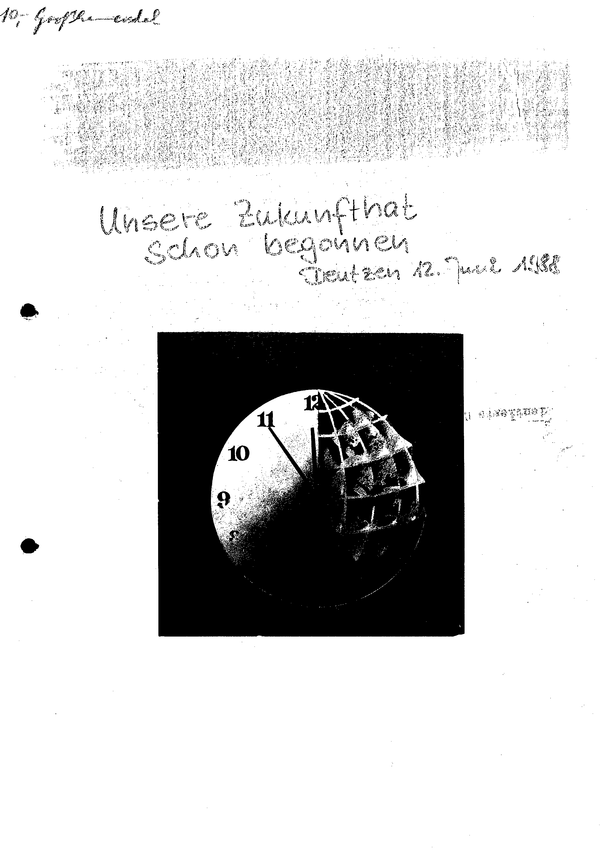 10,-
Unsere Zukunfthat
schon begonnen
Deutzen 12. Juni 1988
12
11
10
9
8